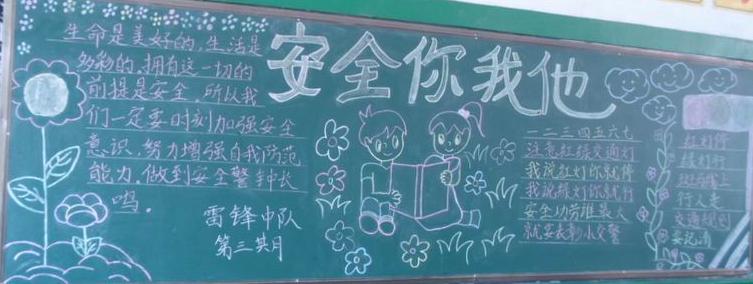 安全你我他
生命是美好的，生活是
多彩的，拥有这一切的
前提是安全，所以我
们一定要时刻加强安全
意识，努力增强自我防范
能力，做到安全警钟长
鸣。
雷锋中队
第三期月
一二三四五六七
注意红绿交通灯
我说红灯你就停
我说绿灯你就行
安全功劳谁最大
就要表彰小交警
红灯停
绿灯行
斑马线上
行人走
交通规则
要记清